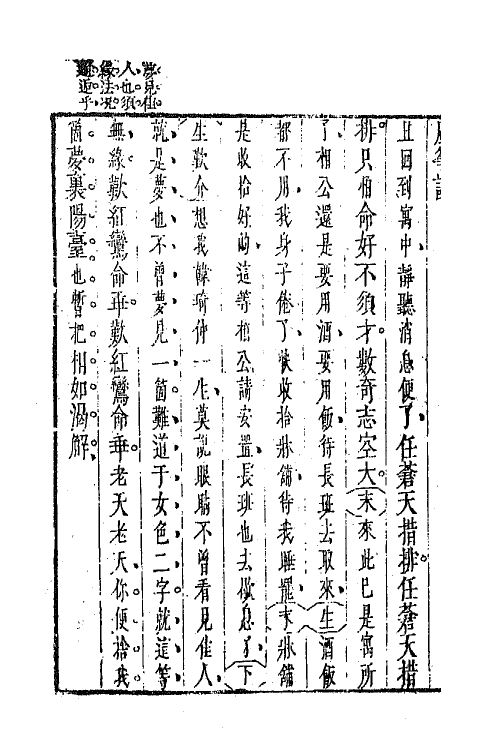 夢見佳
人也須
緣法况
近乎
風箏誤
且回到寓中靜聽消息便了任蒼天措排任蒼天措
排只怕命好不須才數奇志空大末來此已是寓所
了相公還是要用酒要用飯待長班去取來生酒飯
都不用我身子倦了快收拾牀舖待我睡罷末牀舖
是收拾好的這等相公請安置長班也去歇息了下
生歎介想我韓琦仲一生莫說眼睛不曾看見佳人
就是夢也不曾夢見一箇難道于女色二字就這等
無緣歎紅鸞命乖歎紅鸞命乖老天老天你便捨我
箇夢裏陽臺也暫把相如渴解